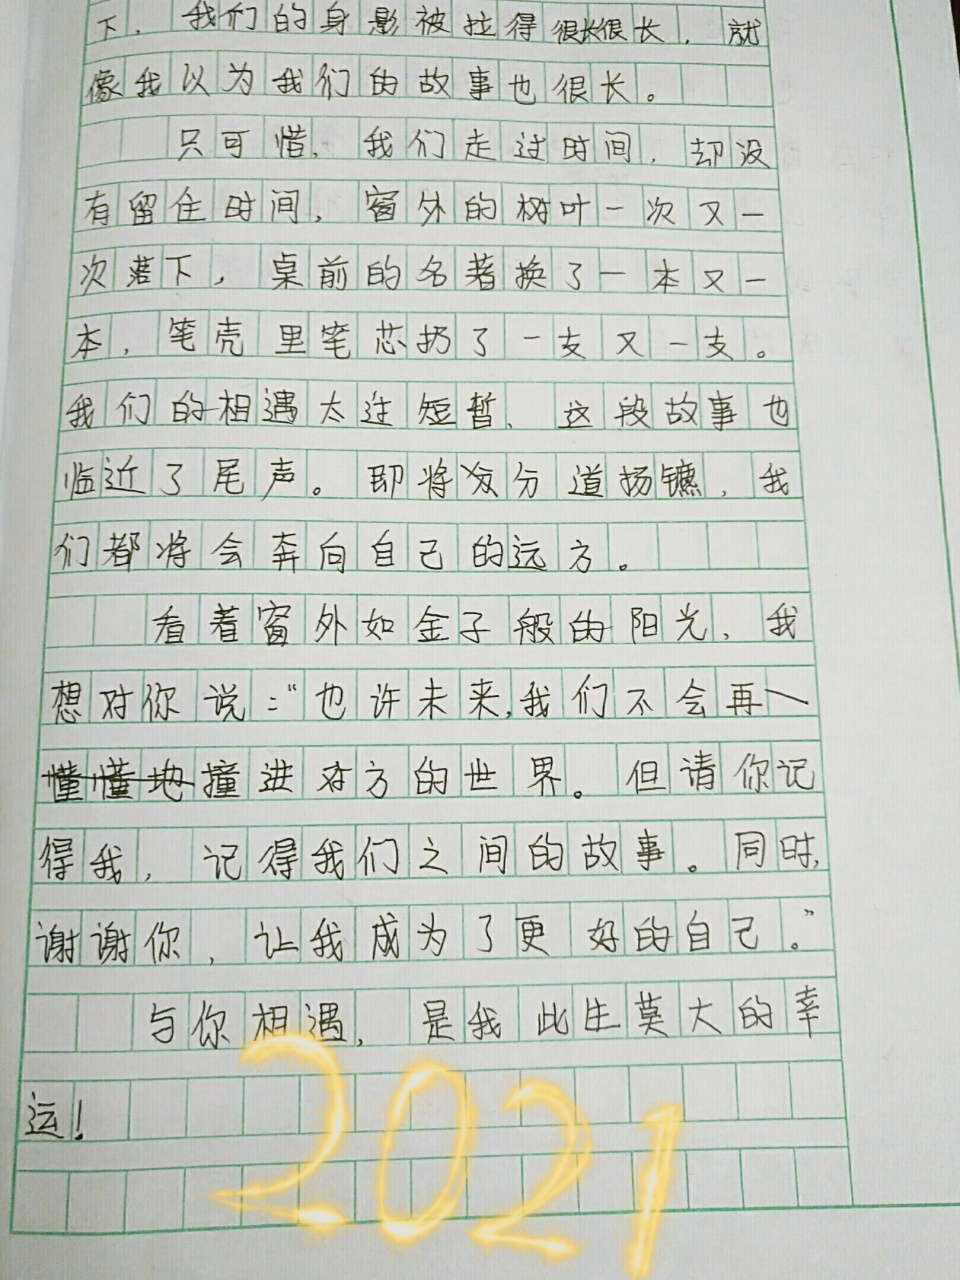 下，我们的身影被拉得很长很长，就
像我以为我们的故事也很长。
只可惜，我们走过时间，却没
有留住时间，窗外的树叶一次又一
次落下，桌前的名著换了一本又一
本，笔壳里笔芯扔了一支又一支。
我们的相遇太过短暂，这段故事也
临近了尾声。即将分道扬镳，我
们都将会奔向自己的远方。
看着窗外如金子般的阳光，我
想对你说：“也许未来，我们不会再
懂懂地撞进对方的世界。但请你记
得我，记得我们之间的故事。同时，
谢谢你，让我成为了更好的自己。”
与你相遇，是我此生莫大的幸
运！
2021